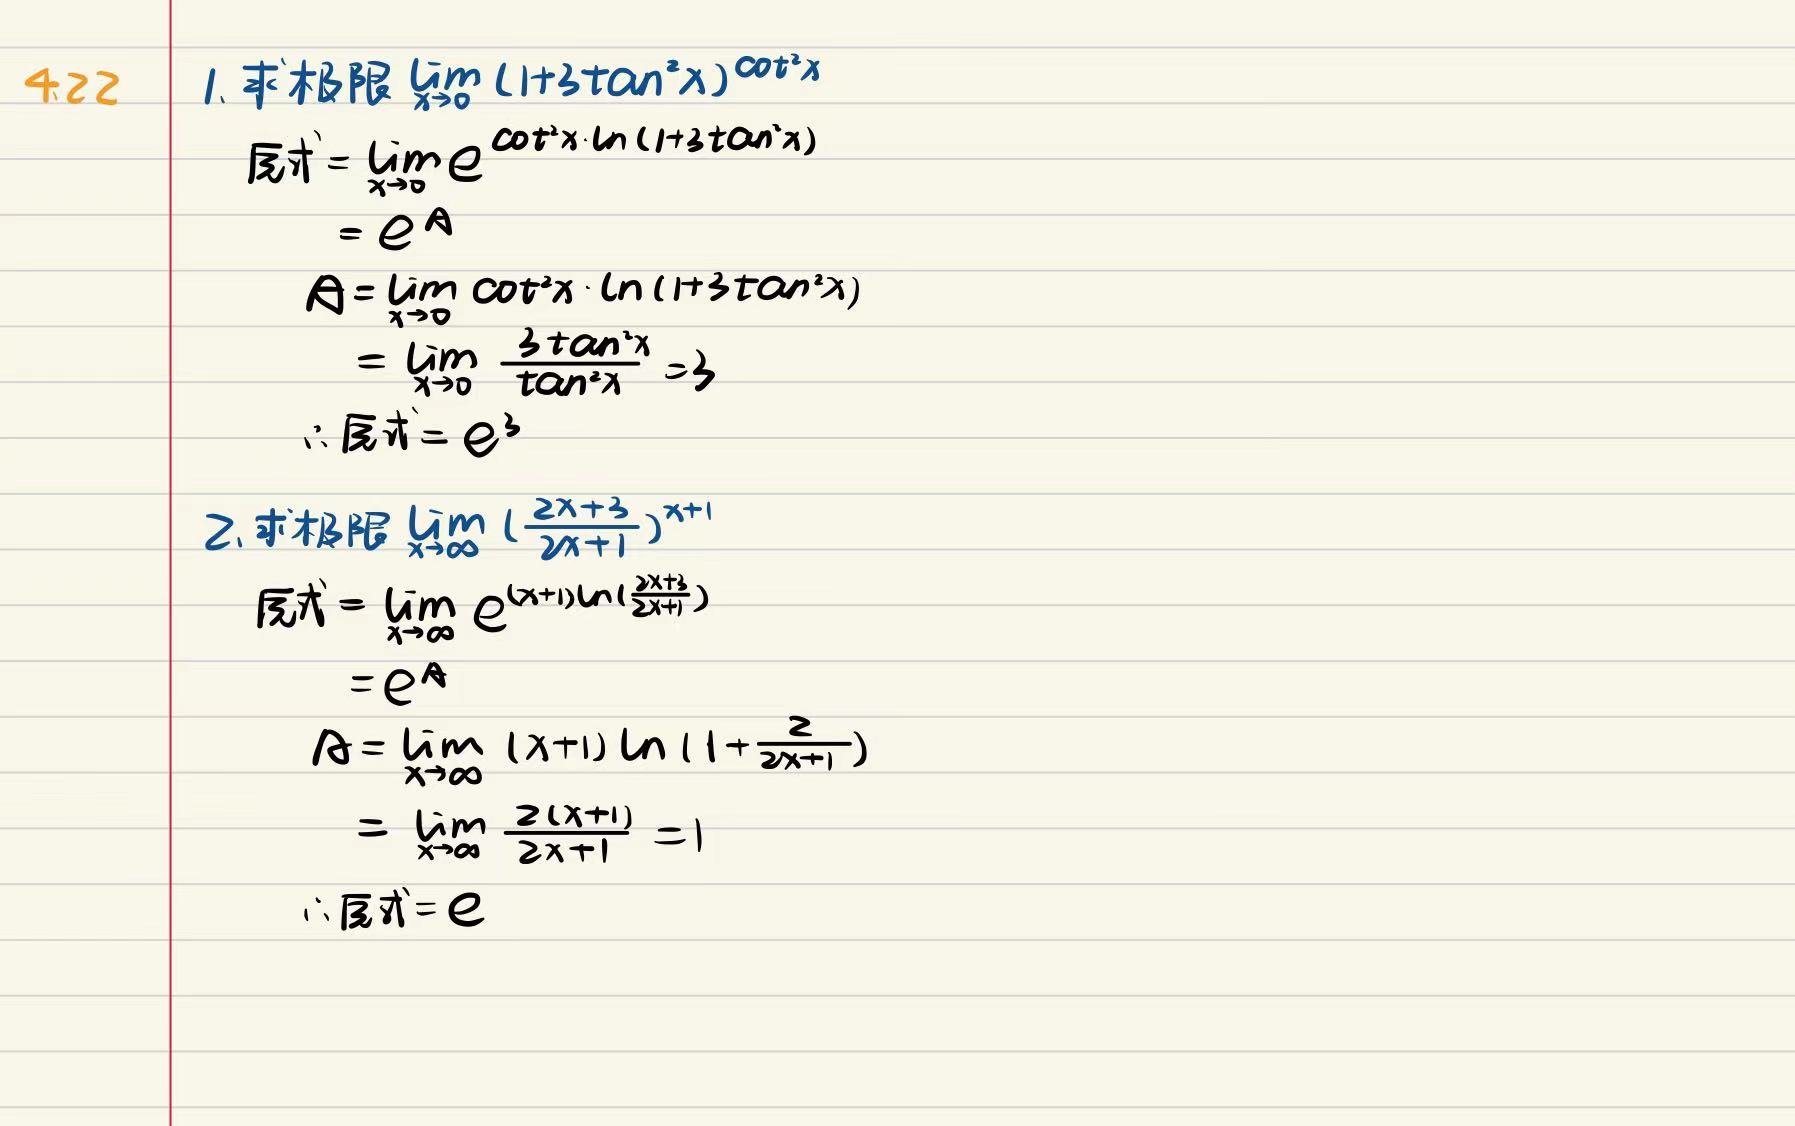 4.22
1. 求极限 lim x→0 (1+3tan²x)^cot²x
原式 = lim x→0 e^cot²x·ln(1+3tan²x)
= e^A
A = lim x→0 cot²x · ln(1+3tan²x)
= lim x→0 3tan²x/tan²x =3
∴原式 = e³
2. 求极限 lim x→∞ (2x+3/2x+1)^x+1
原式 = lim x→∞ e^(x+1)ln(2x+3/2x+1)
= e^A
A = lim x→∞ (x+1) ln (1+2/2x+1)
= lim x→∞ 2(x+1)/2x+1 =1
∴原式 = e